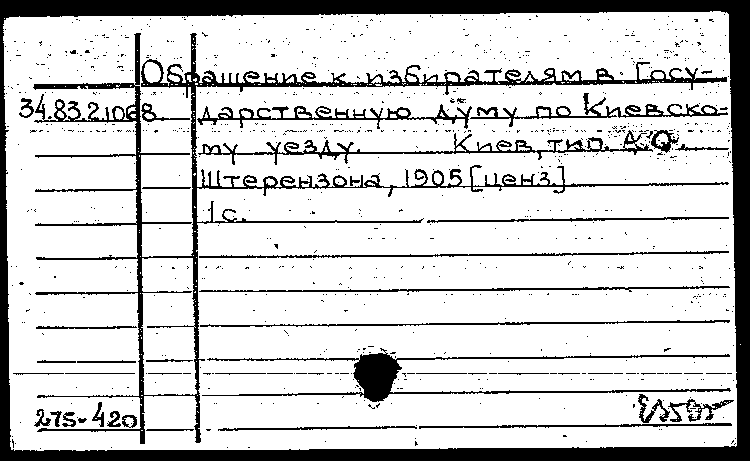 Обращение к избирателям в Госу-
34.83.21068. дарственную думу по Киевско-
му уезду. Киев, тип. А.О.
Штерензона, 1905 [ценз.]
1 с.
275-420